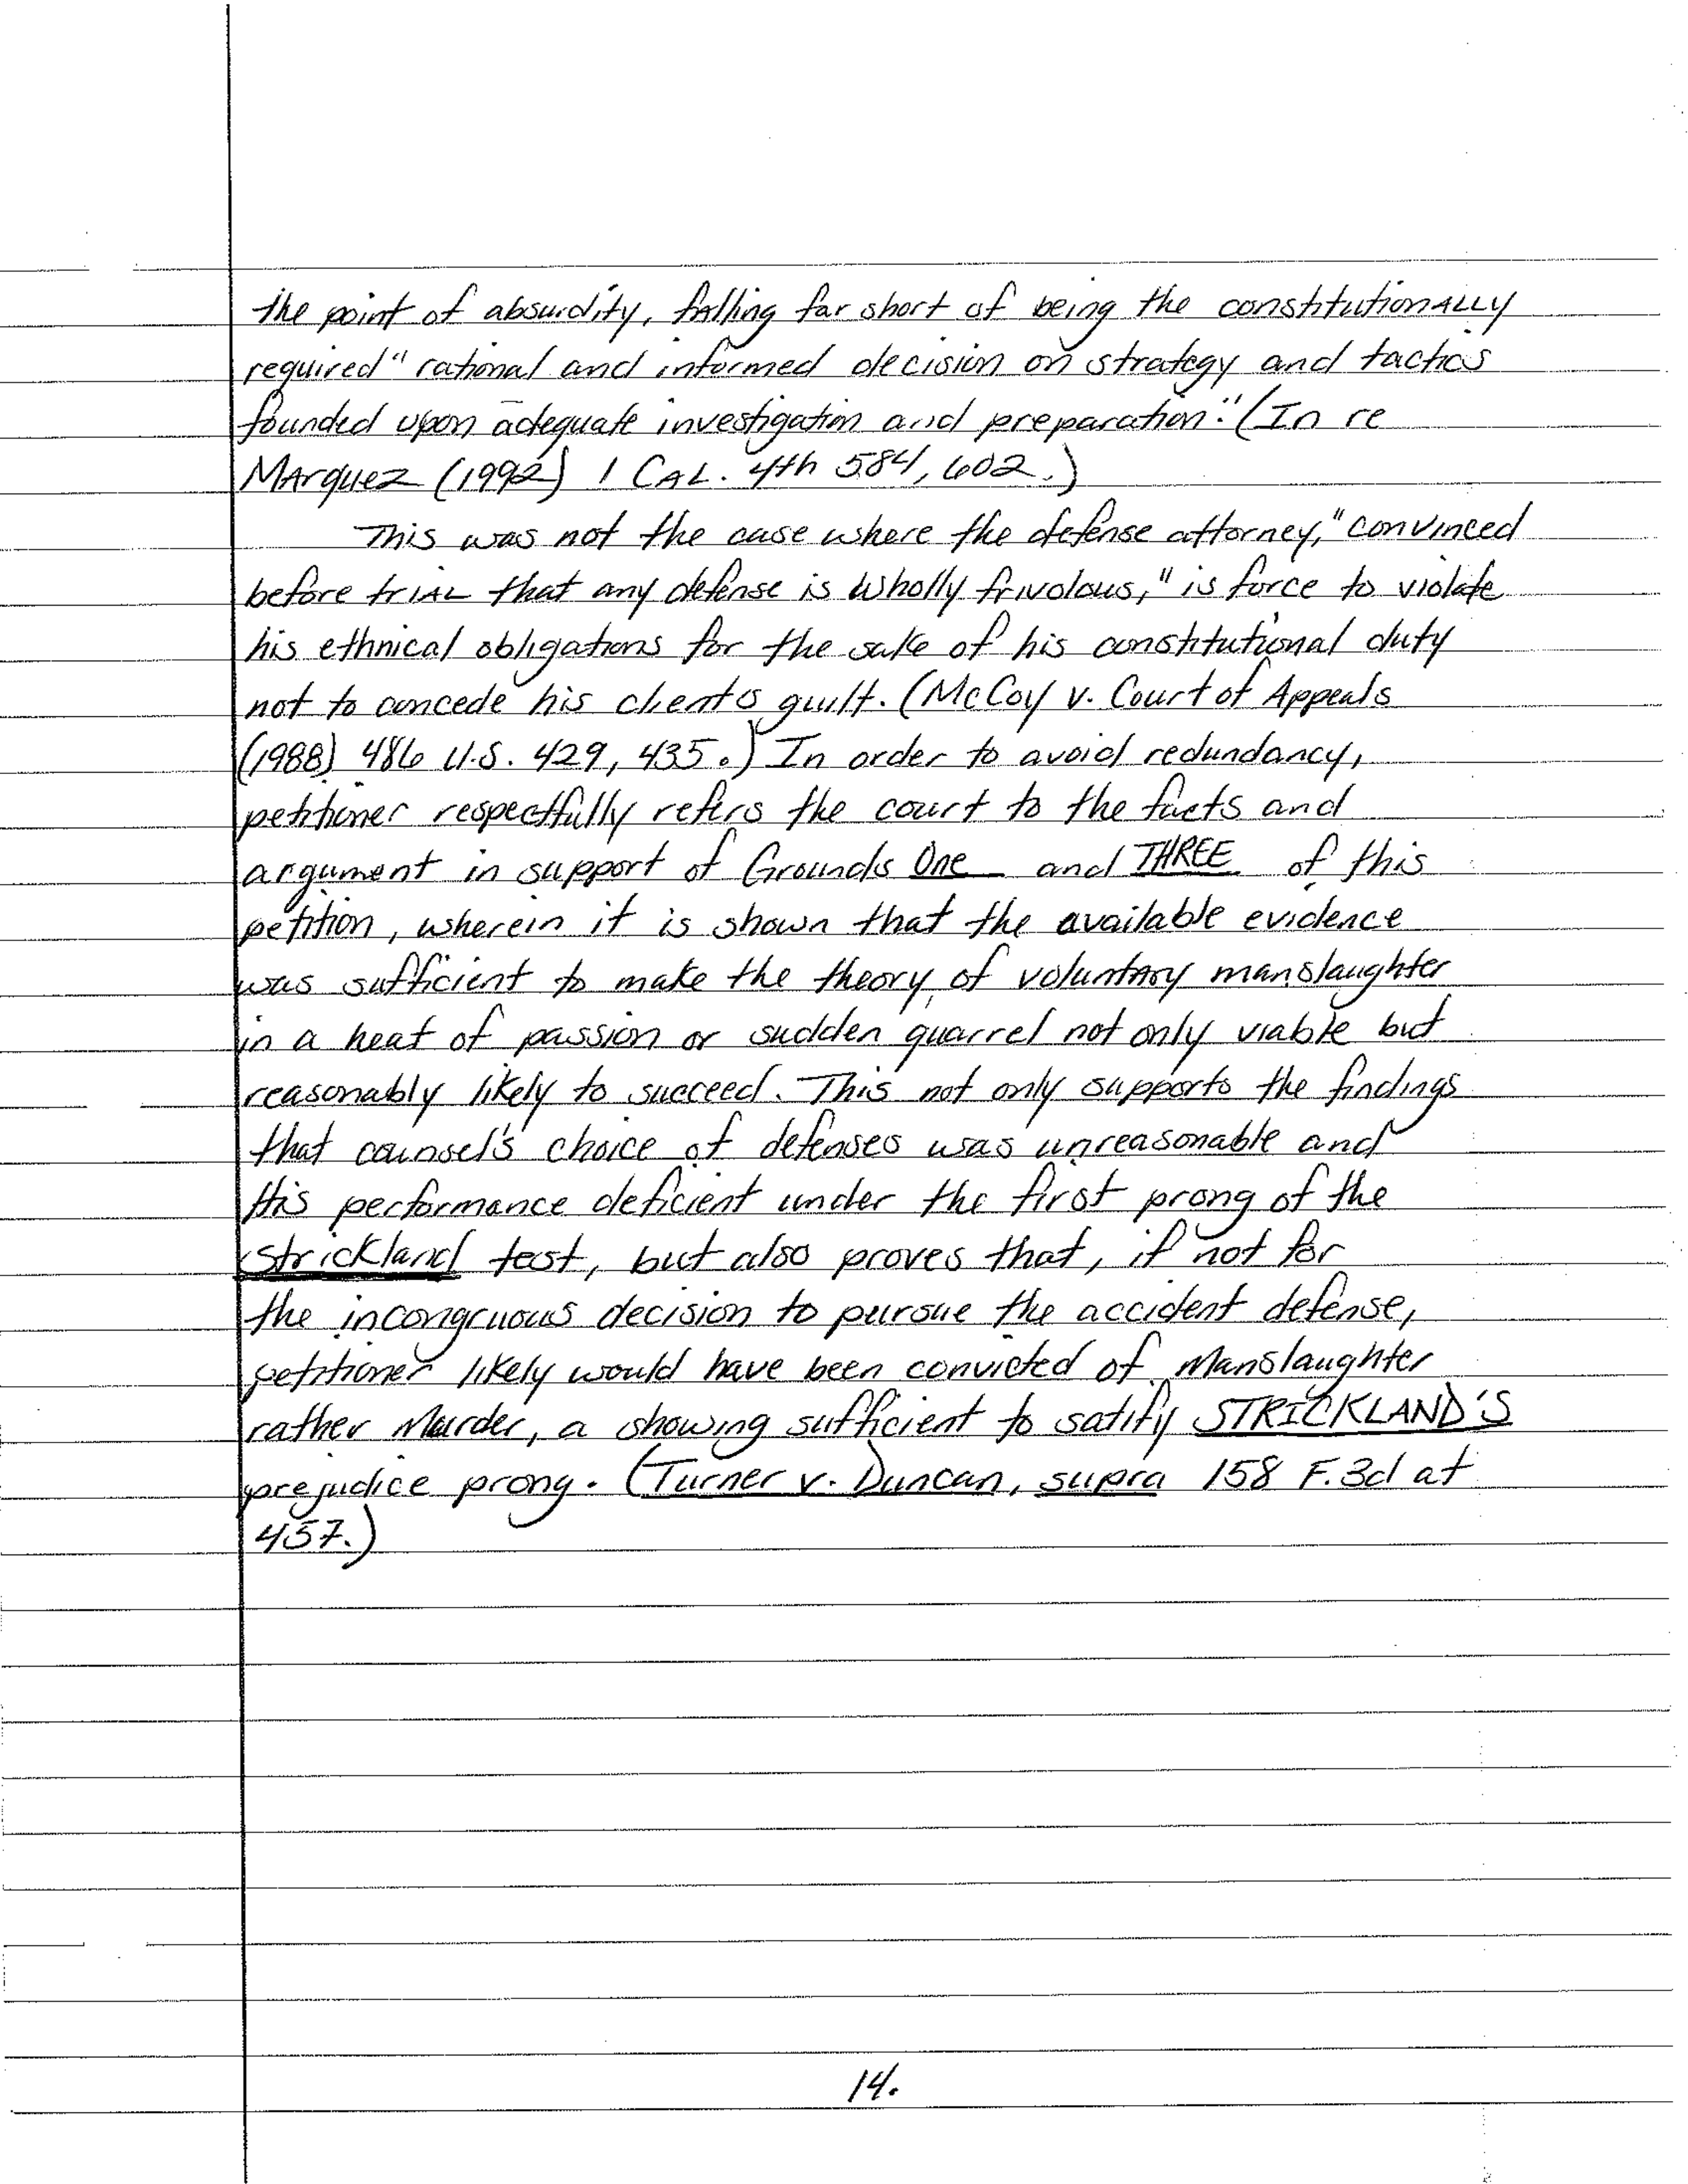 the point of absurdity, falling far short of being the constitutionALLY
required "rational and informed decision on strategy and tactics
founded upon adequate investigation and preparation." (In re
MArquez (1992) 1 CAL. 4th 584, 602.)
This was not the case where the defense attorney, "convinced
before triAL that any defense is wholly frivolous," is force to violate
his ethnical obligations for the sake of his constitutional duty
not to concede his client's guilt. (McCoy v. Court of Appeals
(1988) 486 U.S. 429, 435.) In order to avoid redundancy,
petitioner respectfully refers the court to the facts and
argument in support of Grounds One and THREE of this
petition, wherein it is shown that the available evidence
was sufficient to make the theory of voluntAry manslaughter
in a heat of passion or sudden quarrel not only viable but
reasonably likely to succeed. This not only supports the findings
that counsel's choice of defenses was unreasonable and
His performance deficient under the first prong of the
Strickland test, but also proves that, if not for
the incongruous decision to pursue the accident defense,
petitioner likely would have been convicted of Manslaughter
rather Murder, a showing sufficient to satify STRICKLAND'S
prejudice prong. (Turner v. Duncan, supra 158 F.3d at
457.)
14.